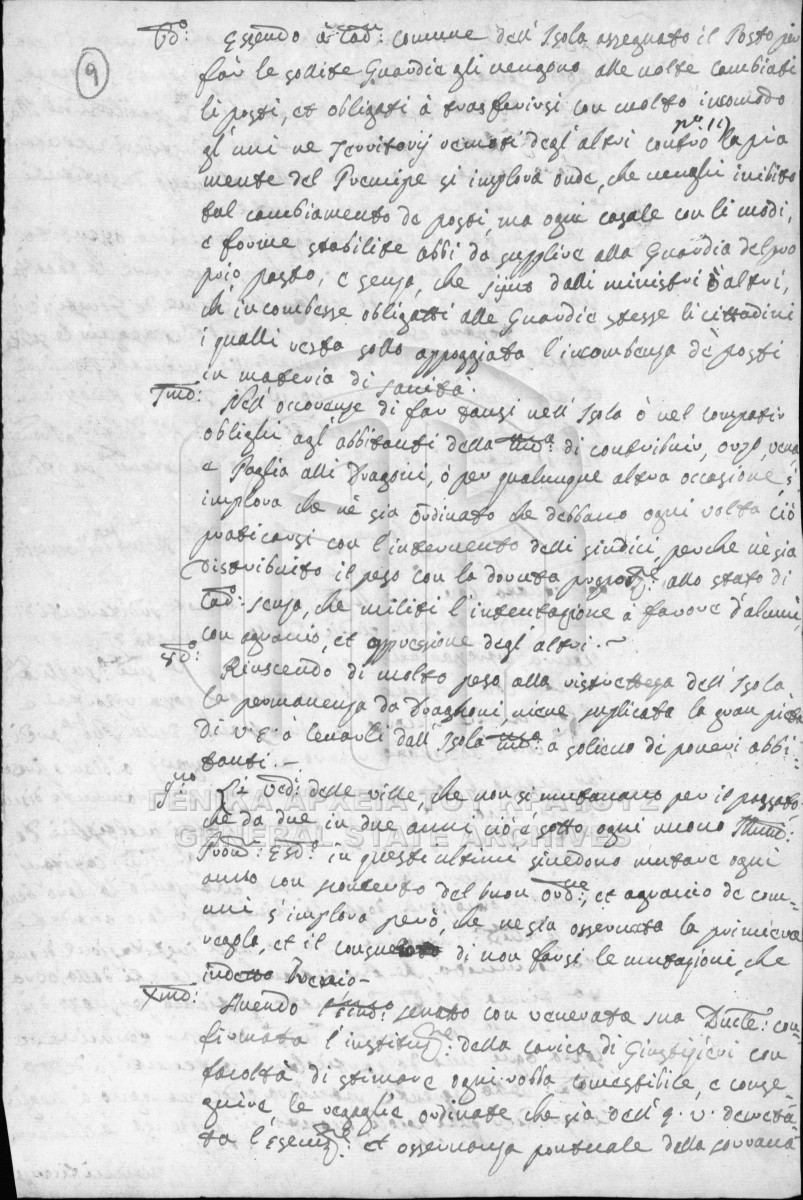 9
Essendo à cad: comune dell' Isola assegnato il Posto per
far le solite Guardie gli vengono alle volte cambiati
li posti, et obligati à trasferirsi con molto incomodo
gl' uni ne Territorij remoti degl' altri contro la pia
mente del Prencipe si implora onde, che venghi inibito
tal cambiamento de posti ma ogni casale con li modi,
e forme stabilite abbi da supplire alla Guardia del pro
prio posto, e senza, che sijno dalli ministri ò altri,
ch' incombesse obligatti alle Guardie stesse li cittadini
i qualli resta sollo appoggiata l'incombenza de posti
in materia di sanità.
Nell' occorenze di far tansi nell' Isola ò nel comparti
oblighi agl' abbitanti della di contribuir, orzo,
e Paglia alli Dragoni, ò per qualunque altra occasione, s'
implora che nè sia ordinato che debbano ogni volta ciò
praticarsi con l'intervento delli giudici, perche nè sia
distribuito il peso con la dovuta allo stato di
cad: senza, che militi l'intentazione à favore d'alcuni,
con agravio, et oppressione degl' altri.
Riuscendo di molto peso alla ristrettezza dell' Isola
la permanenza da Dragoni, viene suplicata la gran pietà
di V: E: à levarli dall' Isola à solievo de poveri abbi
tanti.
Li delle ville, che non si mutavano per il passato
che da due in due anni ciò è sotto ogni nuovo
in questi ultimi si vedono mutare ogni
anno con sconcerto del buon ord:ne, et agravio de com
uni s'implora però, che ne sia osservata la primiera
regola, et il di non farsi le mutazioni, che
Avendo senato con venerata sua Ducle: con
firmata l' della carica di Giustizieri con
facoltà di stimare ogni robba comestibile, e conse
guire le regaglie ordinate che sia dell' decreta
ta l' et osservanza pontuale della sovrana
ΓΕΝΙΚΑ ΑΡΧΕΙΑ ΤΟΥ ΚΡΑΤΟΥΣ
GENERAL STATE ARCHIVES